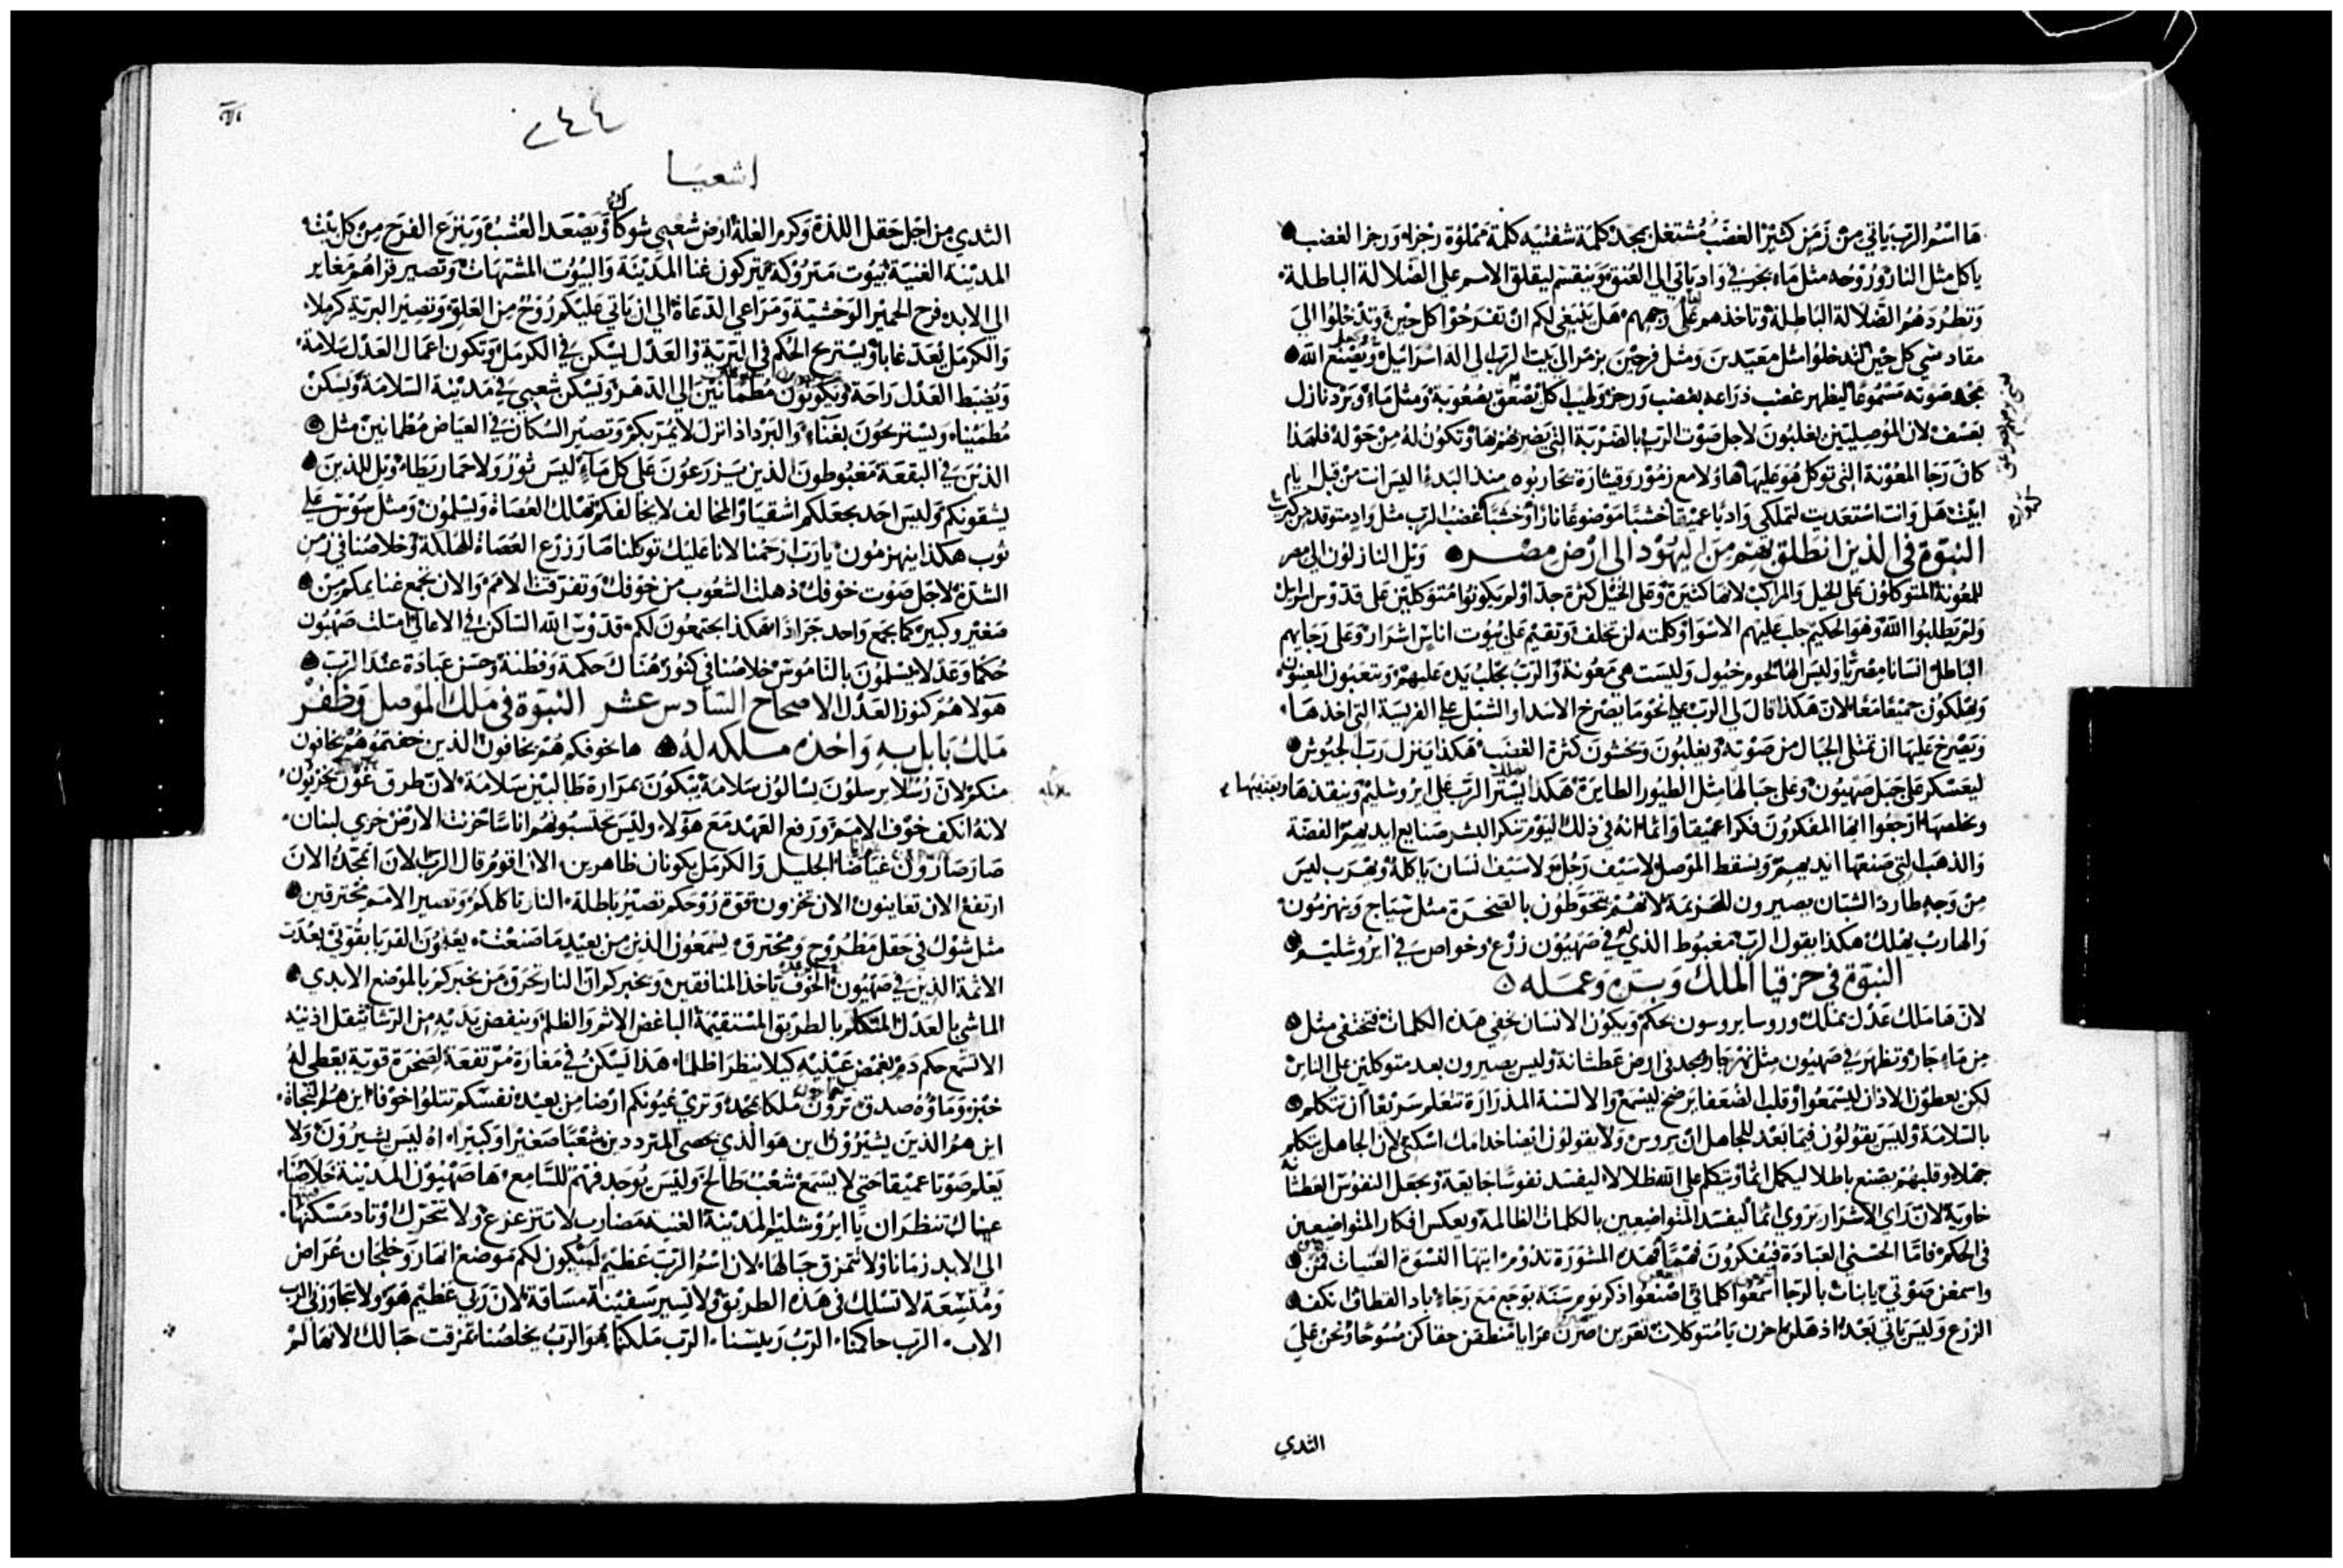 ها اسم الرب ياتي من زمن كثير الغضب مشتعل بمجد كلمة شفتيه كلمة مملوة رجزا ورجزا لغضب
ياكل مثل النار وروحه مثل ماء يجري في واد ياتي الي العنق وينقسم ليقلق الامم علي الضلالة الباطلة
وتطردهم الضلالة الباطلة وتاخذهم علي وجههم هل ينبغي لكم ان تفرحوا كل حين وتدخلوا الي
مقادسي كل حين لتدخلوا مثل معيدين ومثل فرحين بزمر الي بيت الرب الي اله اسرائيل ويصنع الله
مجد صوته مسموعا ليظهر غضب ذراعه بغضب ورجز ولهيب اكل يصعق بصعوبة ومثل ماء وبرد نازل
بعسف لان الموصليين يغلبون لاجل صوت الرب بالضربة التي يضربهم بها وتكون له من حوله فلهذا
كان رجا المعونة التي توكل هو عليها هاولا مع زمور وقيثارة يحاربوه منذ البدء اليس انت من قبل ايام
ابيت هل وانت استعديت لتملكي واديا عميقا خشبا موضوعا نارا وخشبا غضب الرب مثل واد متوقد من كبريت
النبوة في الذين انطلق بهم من اليهود الي ارض مصر ويل النازلون الي مصر
للمعونة المتوكلون علي الخيل والمراكب لانها كثيرة وعلي الخيل كثرة جدا ولم يكونوا متوكلين علي قدوس اسراييل
ولم يطلبوا الله وهو الحكيم جلب عليهم الاسوا وكلمته لن تخلف وتقيم علي بيوت اناس اشرار وعلي رجايهم
الباطل انسانا مصريا وليس الها لحوم خيول وليست هي معونة والرب يجلب يده عليهم ويتعبون المعينون
ويهلكون جميعا معا لان هكذا قال لي الرب نحو ما يصرخ الاسد او الشبل علي الفريسة التي اخذها
ويصرخ عليها ان تمتلي الجبال من صوته ويغلبون ويخشون كثرة الغضب هكذا ينزل رب الجيوش
ليعسكر علي جبل صهيون وعلي جبالها مثل الطيور الطايرة هكذا يستر الرب علي ايروشليم وينقذها ويعينها
ويخلصها ارجعوا ايها المفكرون فكرا عميقا واثما انه في ذلك اليوم تنكر البشر صنايع ايديهم الفضة
والذهب التي صنعتها ايديهم ويسقط الموصل لا سيف رجل ولا سيف انسان ياكله ويهرب ليس
من وجه طارد الشبان يصيرون للهزيمة لانهم يتحوطون بالصخرة مثل سياج وينهزمون
والهارب يهلك هكذا يقول الرب مغبوط الذي له في صهيون زرع وخواص في ايروشليم
النبوة في حزقيا الملك وسره وعمله
لان ها ملك عدل يملك وروسا يروسون بحكم ويكون الانسان يخفي هذه الكلمات فيختفي مثل
من ماء جار وتظهر في صهيون مثل نهر جار بمجد في ارض عطشانة وليس يصيرون بعد متوكلين علي الناس
لكن يعطون الاذان ليسمعوا وقلب الضعفا يرضخ ليسمع والالسنة المذرارة تتعلم سريعا ان تتكلم
بالسلامة وليس يقولون فيما بعد للجاهل ان يروس ولا يقولون ايضا خدامك اسكتي لان الجاهل يتكلم
جهلا وقلبهم يصنع باطلا ليكمل اثما ويتكلم علي الله ظلالا ليفسد نفوسا جايعة ويجعل النفوس العطشانة
خاوية لان راي الاشرار يروي اثما ليفسد المتواضعين بالكلمات الظالمة ويعكس افكار المتواضعين
في الحكم فاما الحسني العبادة فيفكرون فهما فهذه المشورة تدوم ايتها النسوة الغنيات قمن
واسمعن صوتي يا بنات بالرجا اسمعوا كلماتي اصنعوا ذكر يوم سنة بوجع مع رجاء باد القطاف انكف
الزرع وليس ياتي بعد اذهلن احزن يا متوكلات تعرين صرن عرايا منطقن حقاكن مسوحا ونحن علي
الثدي
٢٤٤
اشعيا
الثدي من اجل حقل اللذة وكرم الغلة ارض شعبي شوكا ويصعد العشب وينزع الفرح من كل بيت
المدينة الغنية بيوت متروكة يتركون غنا المدينة والبيوت المشتهات وتصير قراهم مغاير
الي الابد فرح الحمير الوحشية ومراعي الدعاة الي ان ياتي عليكم روح من العلو وتصير البرية كرملا
والكرمل يعد غابا ويستريح الحكم في البرية والعدل يسكن في الكرمل وتكون اعمال العدل سلامة
ويضبط العدل راحة ويكونون مطمأنين الي الدهر ويسكن شعبي في مدينة السلامة ويسكن
مطمئنا ويستريحون بغناء والبرد اذا نزل لا يمر بكم وتصير السكان في الغياض مطمانين مثل
الذين في البقعة مغبوطون الذين يزرعون علي كل ماء ليس ثور ولا حمار يطاء ويل للذين
يشقونكم وليس احد يجعلكم اشقيا والمخالف لا يخالفكم تهلك العصاة ويسلمون ومثل سوس علي
ثوب هكذا ينهزمون يا رب ارحمنا لانا عليك توكلنا صار زرع العصاة للهلكة وخلاصنا في زمن
الشدة لاجل صوت خوفك ذهلت الشعوب من خوفك وتفرقت الامم والان تجمع غنايمكم من
صغير وكبير كما يجمع واحد جرادا هكذا يجتمعون لكم قدوس الله الساكن في الاعالي امتلت صهيون
حكما وعدلا يسلمون بالناموس خلاصنا في كنوز هناك حكمة وفطنة وحسن عبادة عند الرب
هولا هم كنوز العدل الاصحاح السادس عشر النبوة في ملك الموصل وظفر
ملك بابل به واخذه مملكه له ها بخوفكم هم يخافون الذين خفتموهم يخافون
منكم لان رسلا يرسلون يسالون سلامة يبكون بمرارة طالبين سلامة لان طرق عون يخزيون
لانه انكف خوف الامم ورفع العهد مع هولا وليس يحتسبونهم اناسا حزنت الارض خزي لبنان
صار صارون غياضا الجليل والكرمل يكونان ظاهرين الان اقوم قال الرب الان اتمجد الان
ارتفع الان تعاينون الان تخزون قوة روحكم تصير باطلة النار تاكلكم وتصير الامم محترقين
مثل شوك في حقل مطروح ومحترق يسمعون الذين من بعيد ما صنعت يعلمون القربا بقوتي بعدت
الاثمة الذين في صهيون الخوف ياخذ المنافقين ويخبركم ان النار تحرق من يخبركم بالموضع الابدي
الماشي بالعدل المتكلم بالطريق المستقيمة الباغض الاثم والظلم وينفض يديه من الرشا يثقل اذنيه
الا تسمع حكم دم يغمض عينيه كيلا ينظرا ظلما هذا ليسكن في مغارة مرتفعة لصخرة قوية يعطي له
خبز وماؤه صدق ترون ملكا بمجد وتري عيونكم ارضا من بعيد نفسكم تتلوا خوفا اين هم النحاة
اين هم الذين يشيرون اين هو الذي يحصي المترددين شعبا صغيرا وكبيرا اه ليس يشيرون ولا
يعلم صوتا عميقا حتي لا يسمع شعب طالح وليس يوجد فهم للسامع ها صهيون المدينة خلاصنا
عيناك تنظران يا ايروشليم المدينة الغنية مضارب لا تتزعزع ولا تتحرك اوتاد مسكنها
الي الابد زمانا ولا تتمزق حبالها لان اسم الرب عظيم ليكون لكم موضع انهار وخلجان عراض
ومتسعة لا تسلك في هذه الطريق ولا تسير سفينة مسافة لان ربي عظيم هو ولا يتجاوزني الرب
الاب الرب حاكمنا الرب رييسنا الرب ملكنا هو الرب يخلصنا تمزقت حبالك لانها لم